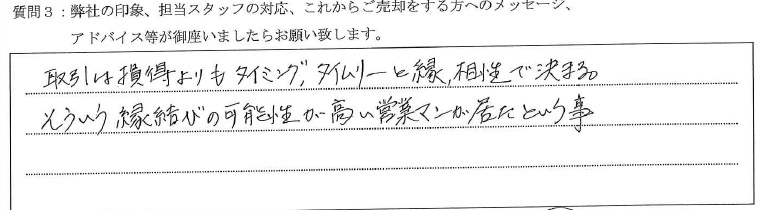 質問3：弊社の印象、担当スタッフの対応、これからご売却をする方へのメッセージ、
アドバイス等が御座いましたらお願い致します。
取引は損得よりもタイミング,タイムリーと縁,相性で決まる。
そういう縁結びの可能性が高い営業マンが居たという事